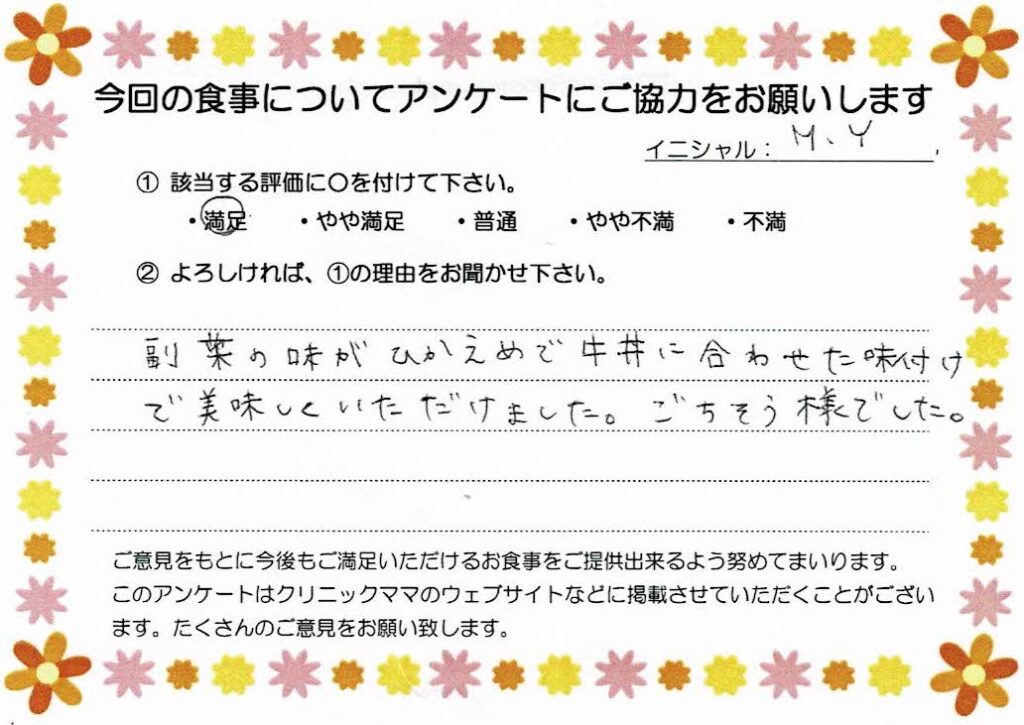 今回の食事についてアンケートにご協力をお願いします
イニシャル： M、Y
① 該当する評価に〇を付けて下さい。
・満足 ・やや満足 ・普通 ・やや不満 ・不満
② よろしければ、①の理由をお聞かせ下さい。
副菜の味がひかえめで牛丼に合わせた味付け
で美味しくいただけました。ごちそう様でした。
ご意見をもとに今後もご満足いただけるお食事をご提供出来るよう努めてまいります。
このアンケートはクリニックママのウェブサイトなどに掲載させていただくことがござい
ます。たくさんのご意見をお願い致します。